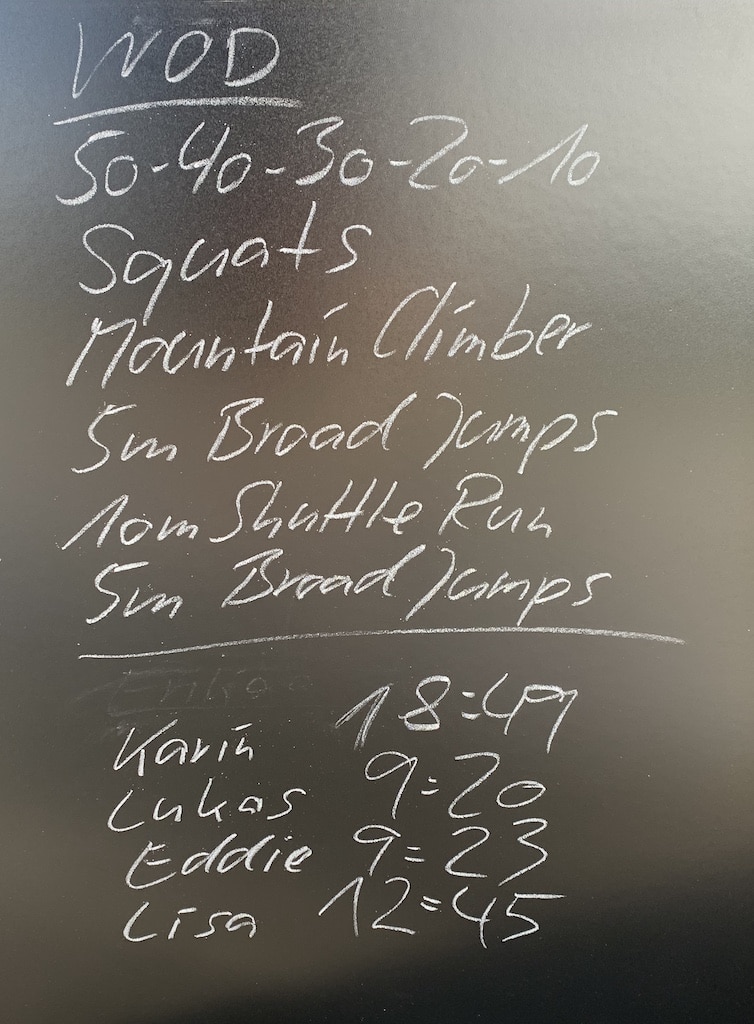 WOD
50-40-30-20-10
Squats
Mountain Climber
5m Broad Jumps
10m Shuttle Run
5m Broad Jumps
Karin 18:49
Lukas 9:20
Eddie 9:23
Lisa 12:45